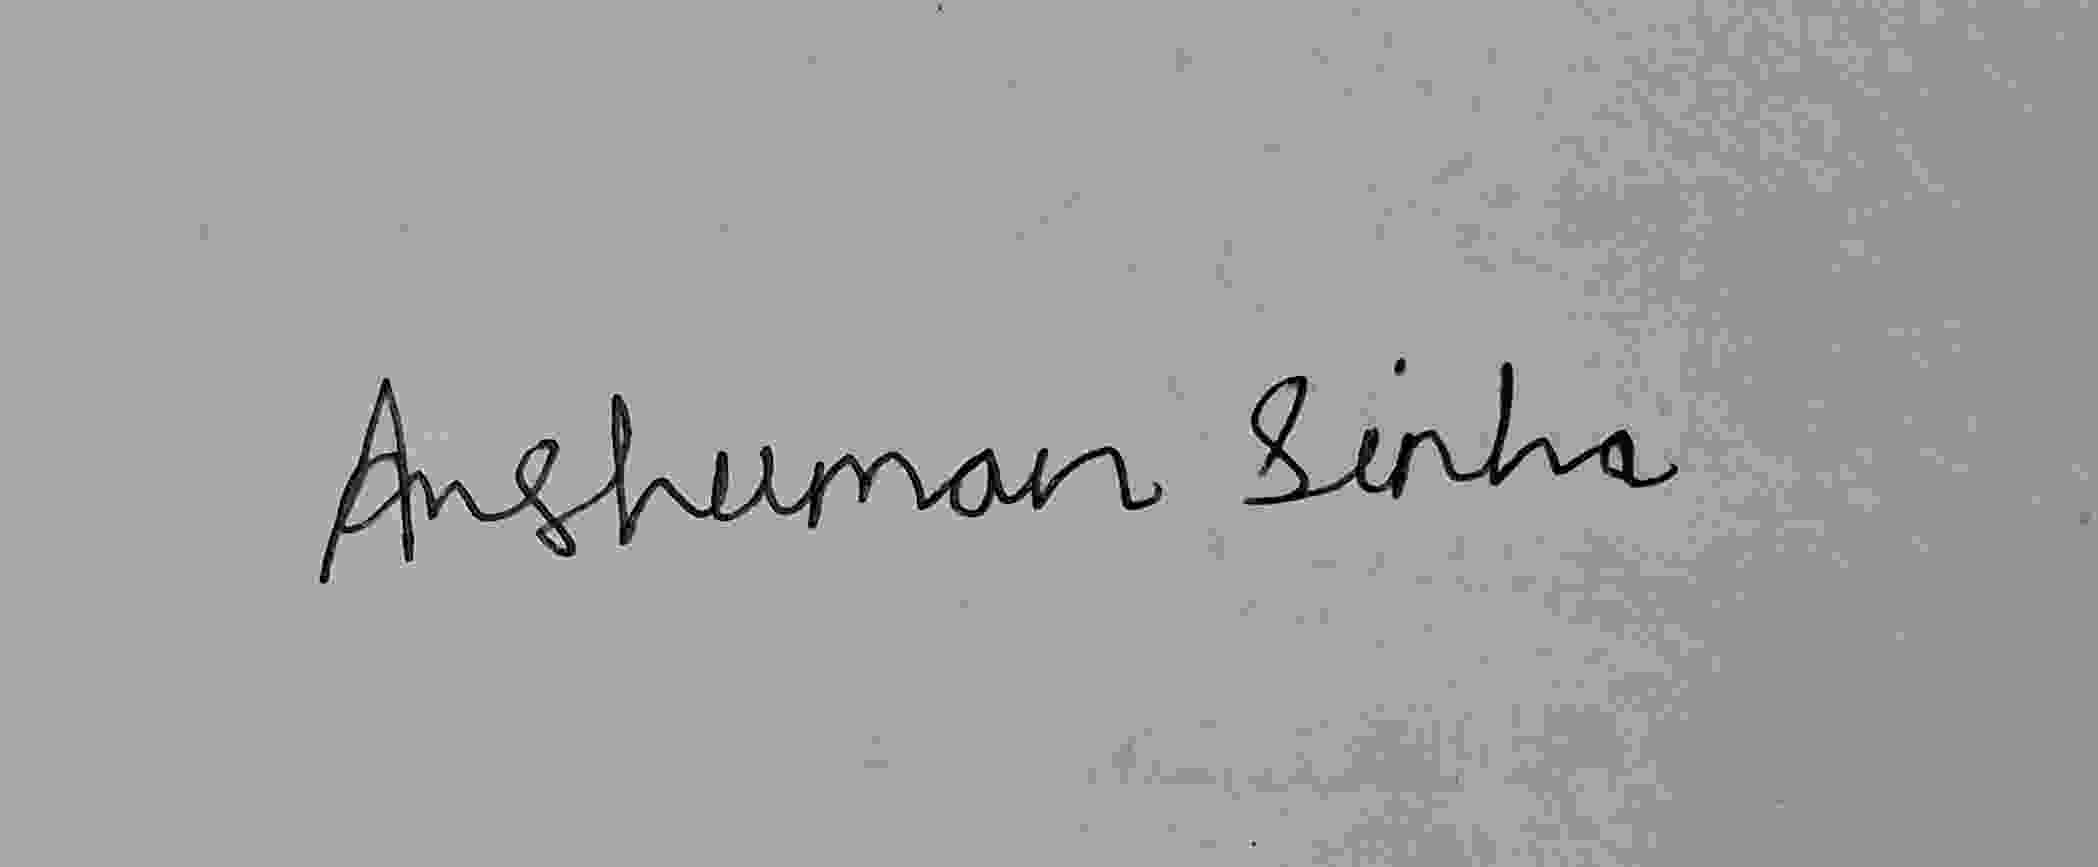 Anshuman Sinha